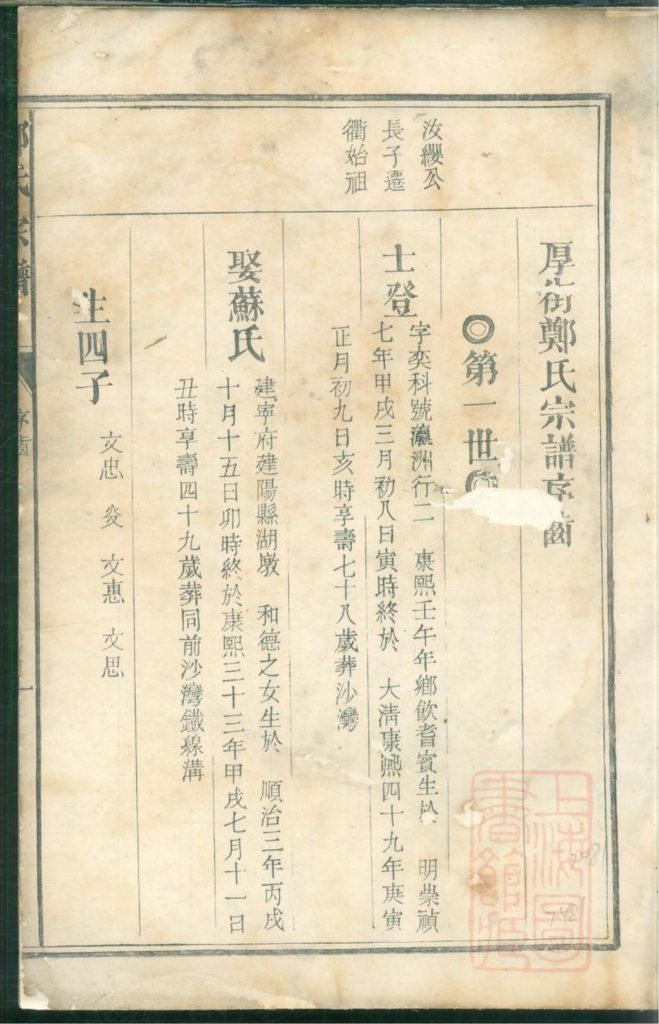 厚街鄭氏宗譜序齒
汝纓公
長子遷
衢始祖
◎第一世◎
士登
字奕科號瀛洲行二 康熙壬午年鄉飲耆賓生於 明崇禎
七年甲戌三月初八日寅時終於 大清康熙四十九年庚寅
正月初九日亥時享壽七十八歲葬沙灣
娶蘇氏
建寧府建陽縣湖墩 和德之女生於 順治三年丙戌
十月十五日卯時終於康熙三十三年甲戌七月十一日
丑時享壽四十九歲葬同前沙灣鐵線溝
生四子
文忠 炎 文惠 文思
鄭氏宗譜
序齒
一
上海圖
書館藏